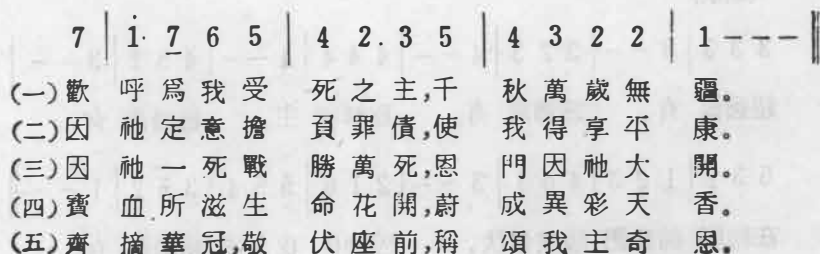 7 | 1· 7 6 5 | 4 2. 3 5 | 4 3 2 2 | 1 - - - ‖
(一)歡 呼爲我受 死之主,千 秋萬歲無 疆。
(二)因 祂定意擔 負罪債,使 我得享平 康。
(三)因 祂一死戰 勝萬死,恩 門因祂大 開。
(四)寶 血所滋生 命花開,蔚 成異彩天 香。
(五)齊 摘華冠,敬 伏座前,稱 頌我主奇 恩。